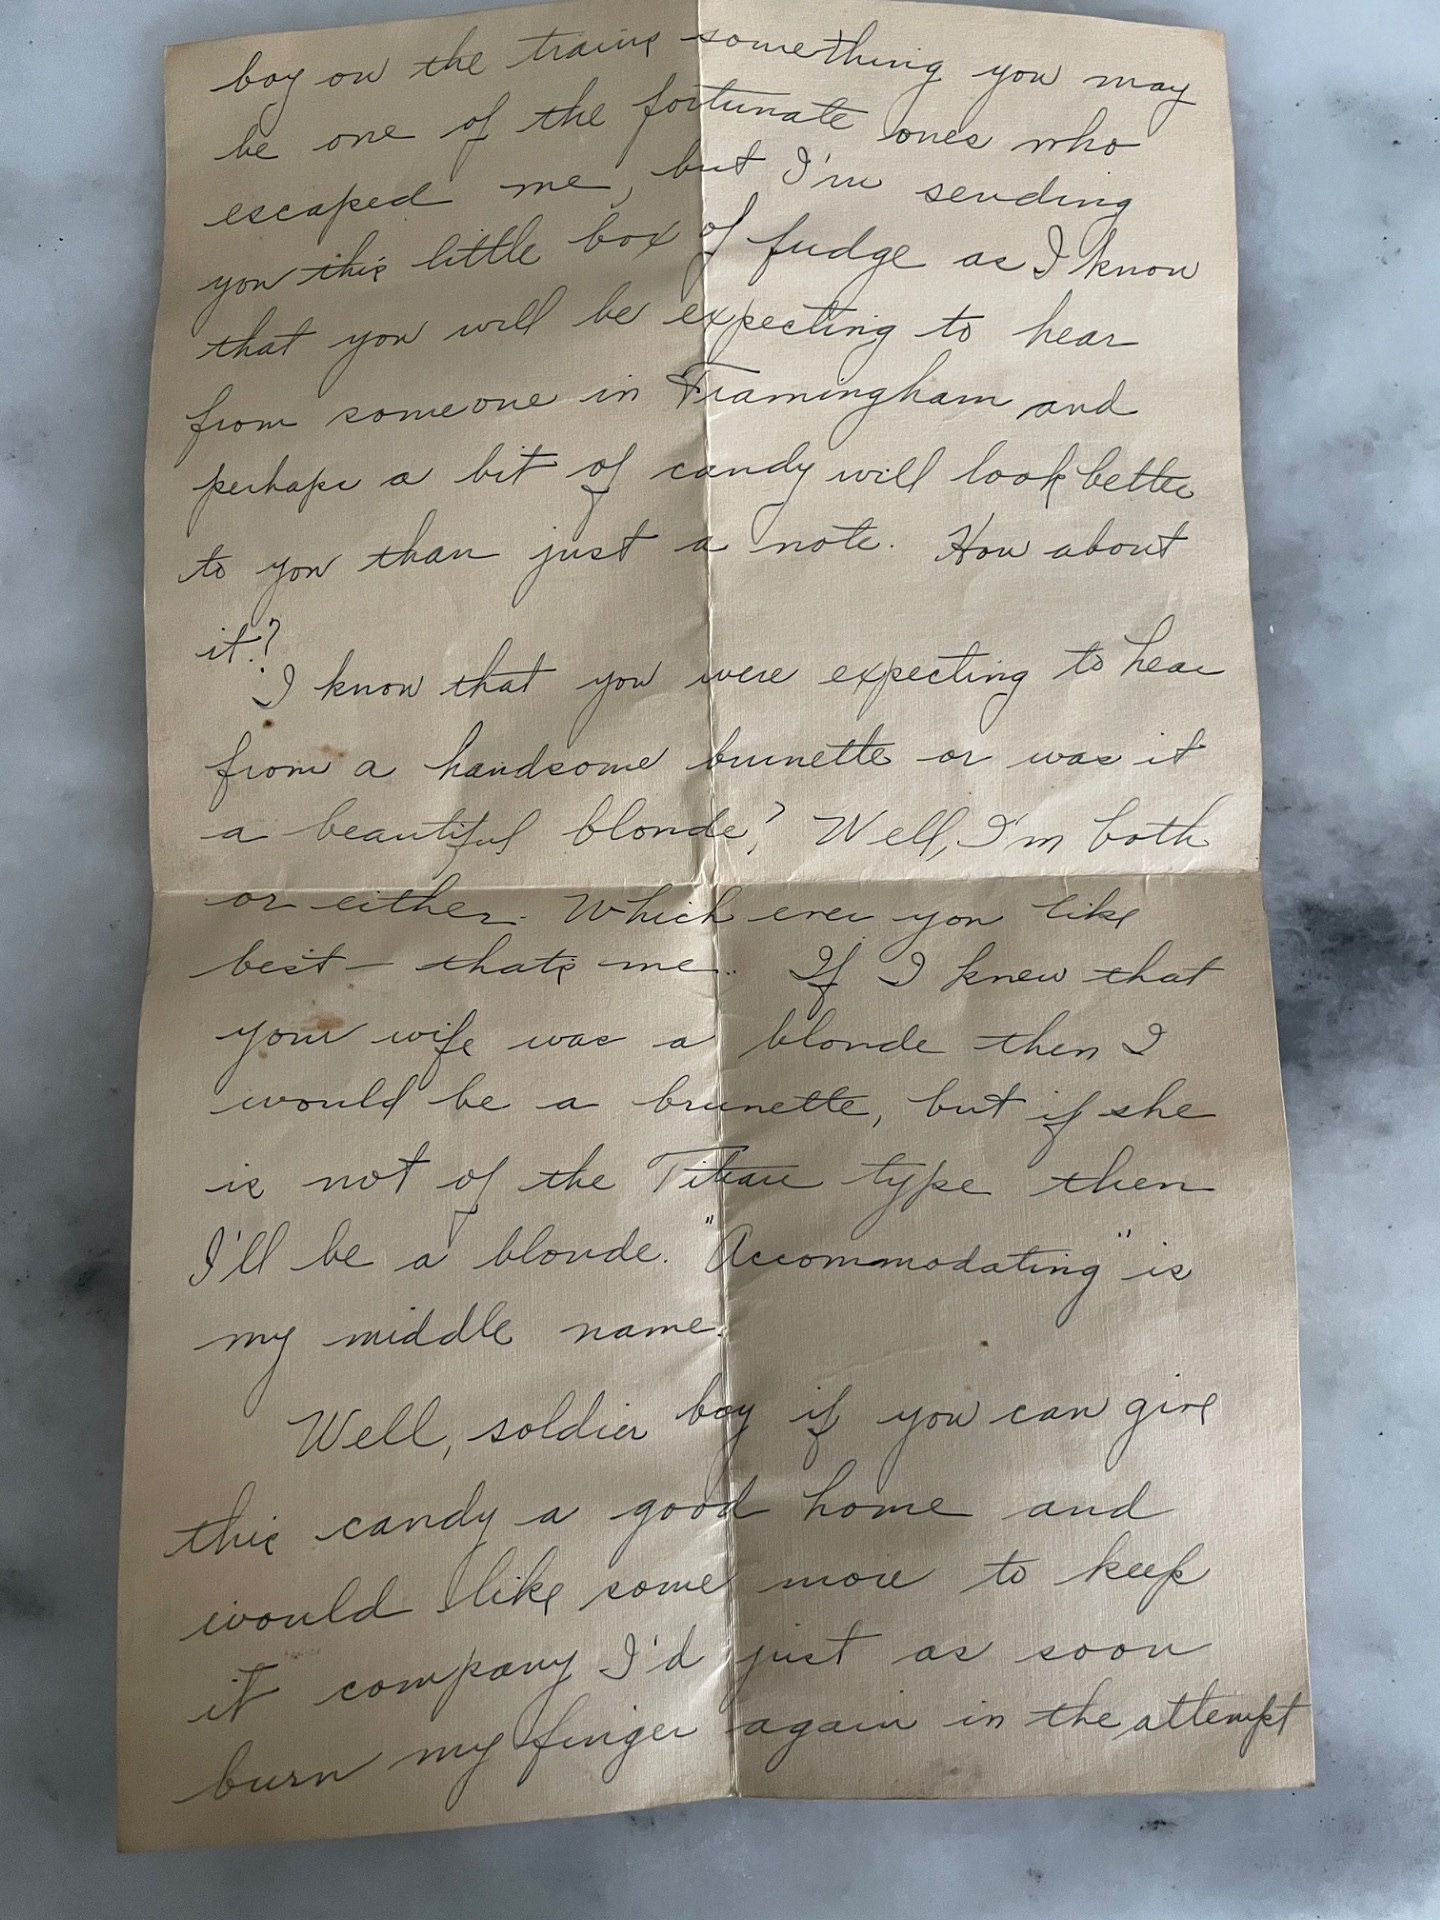 boy on the trains something you may
be one of the fortunate ones who
escaped me, but I'm sending
you this little box of fudge as I know
that you will be expecting to hear
from someone in Framingham and
perhaps a bit of candy will look better
to you than just a note. How about
it?
I know that you were expecting to hear
from a handsome brunette or was it
a beautiful blonde? Well, I'm both
or either. Which ever you like
best - thats me. If I knew that
your wife was a blonde then I
would be a brunette, but if she
is not of the Titian type then
I'll be a blonde. "Accommodating" is
my middle name.
Well, soldier boy if you can give
this candy a good home and
would like some more to keep
it company I'd just as soon
burn my finger again in the attempt